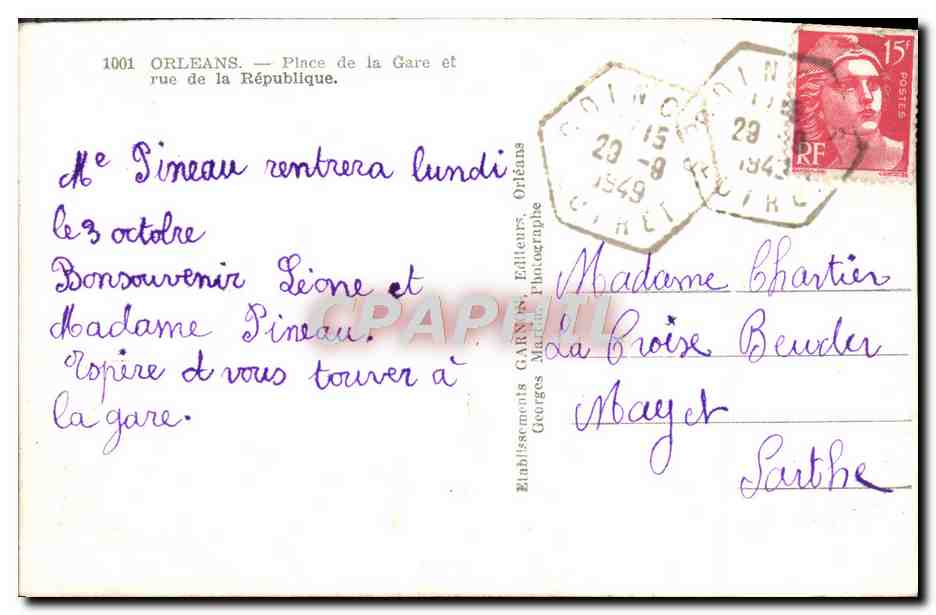 1001 ORLEANS. — Place de la Gare et
rue de la République.
Me Pineau rentrera lundi
le 3 octolre
Bonsouvenir Léone et
Madame Pineau.
Espère d vous touver à
la gare.
Etablissements GARNIS, Editeurs, Orléans
Georges Martin, Photographe
15
29 -9
1949
LOIRET
29
1949
LOIRE
15F
POSTES
RF
Madame Chartier
La Croise Beuder
Mayet
Sarthe
CPAPHIL